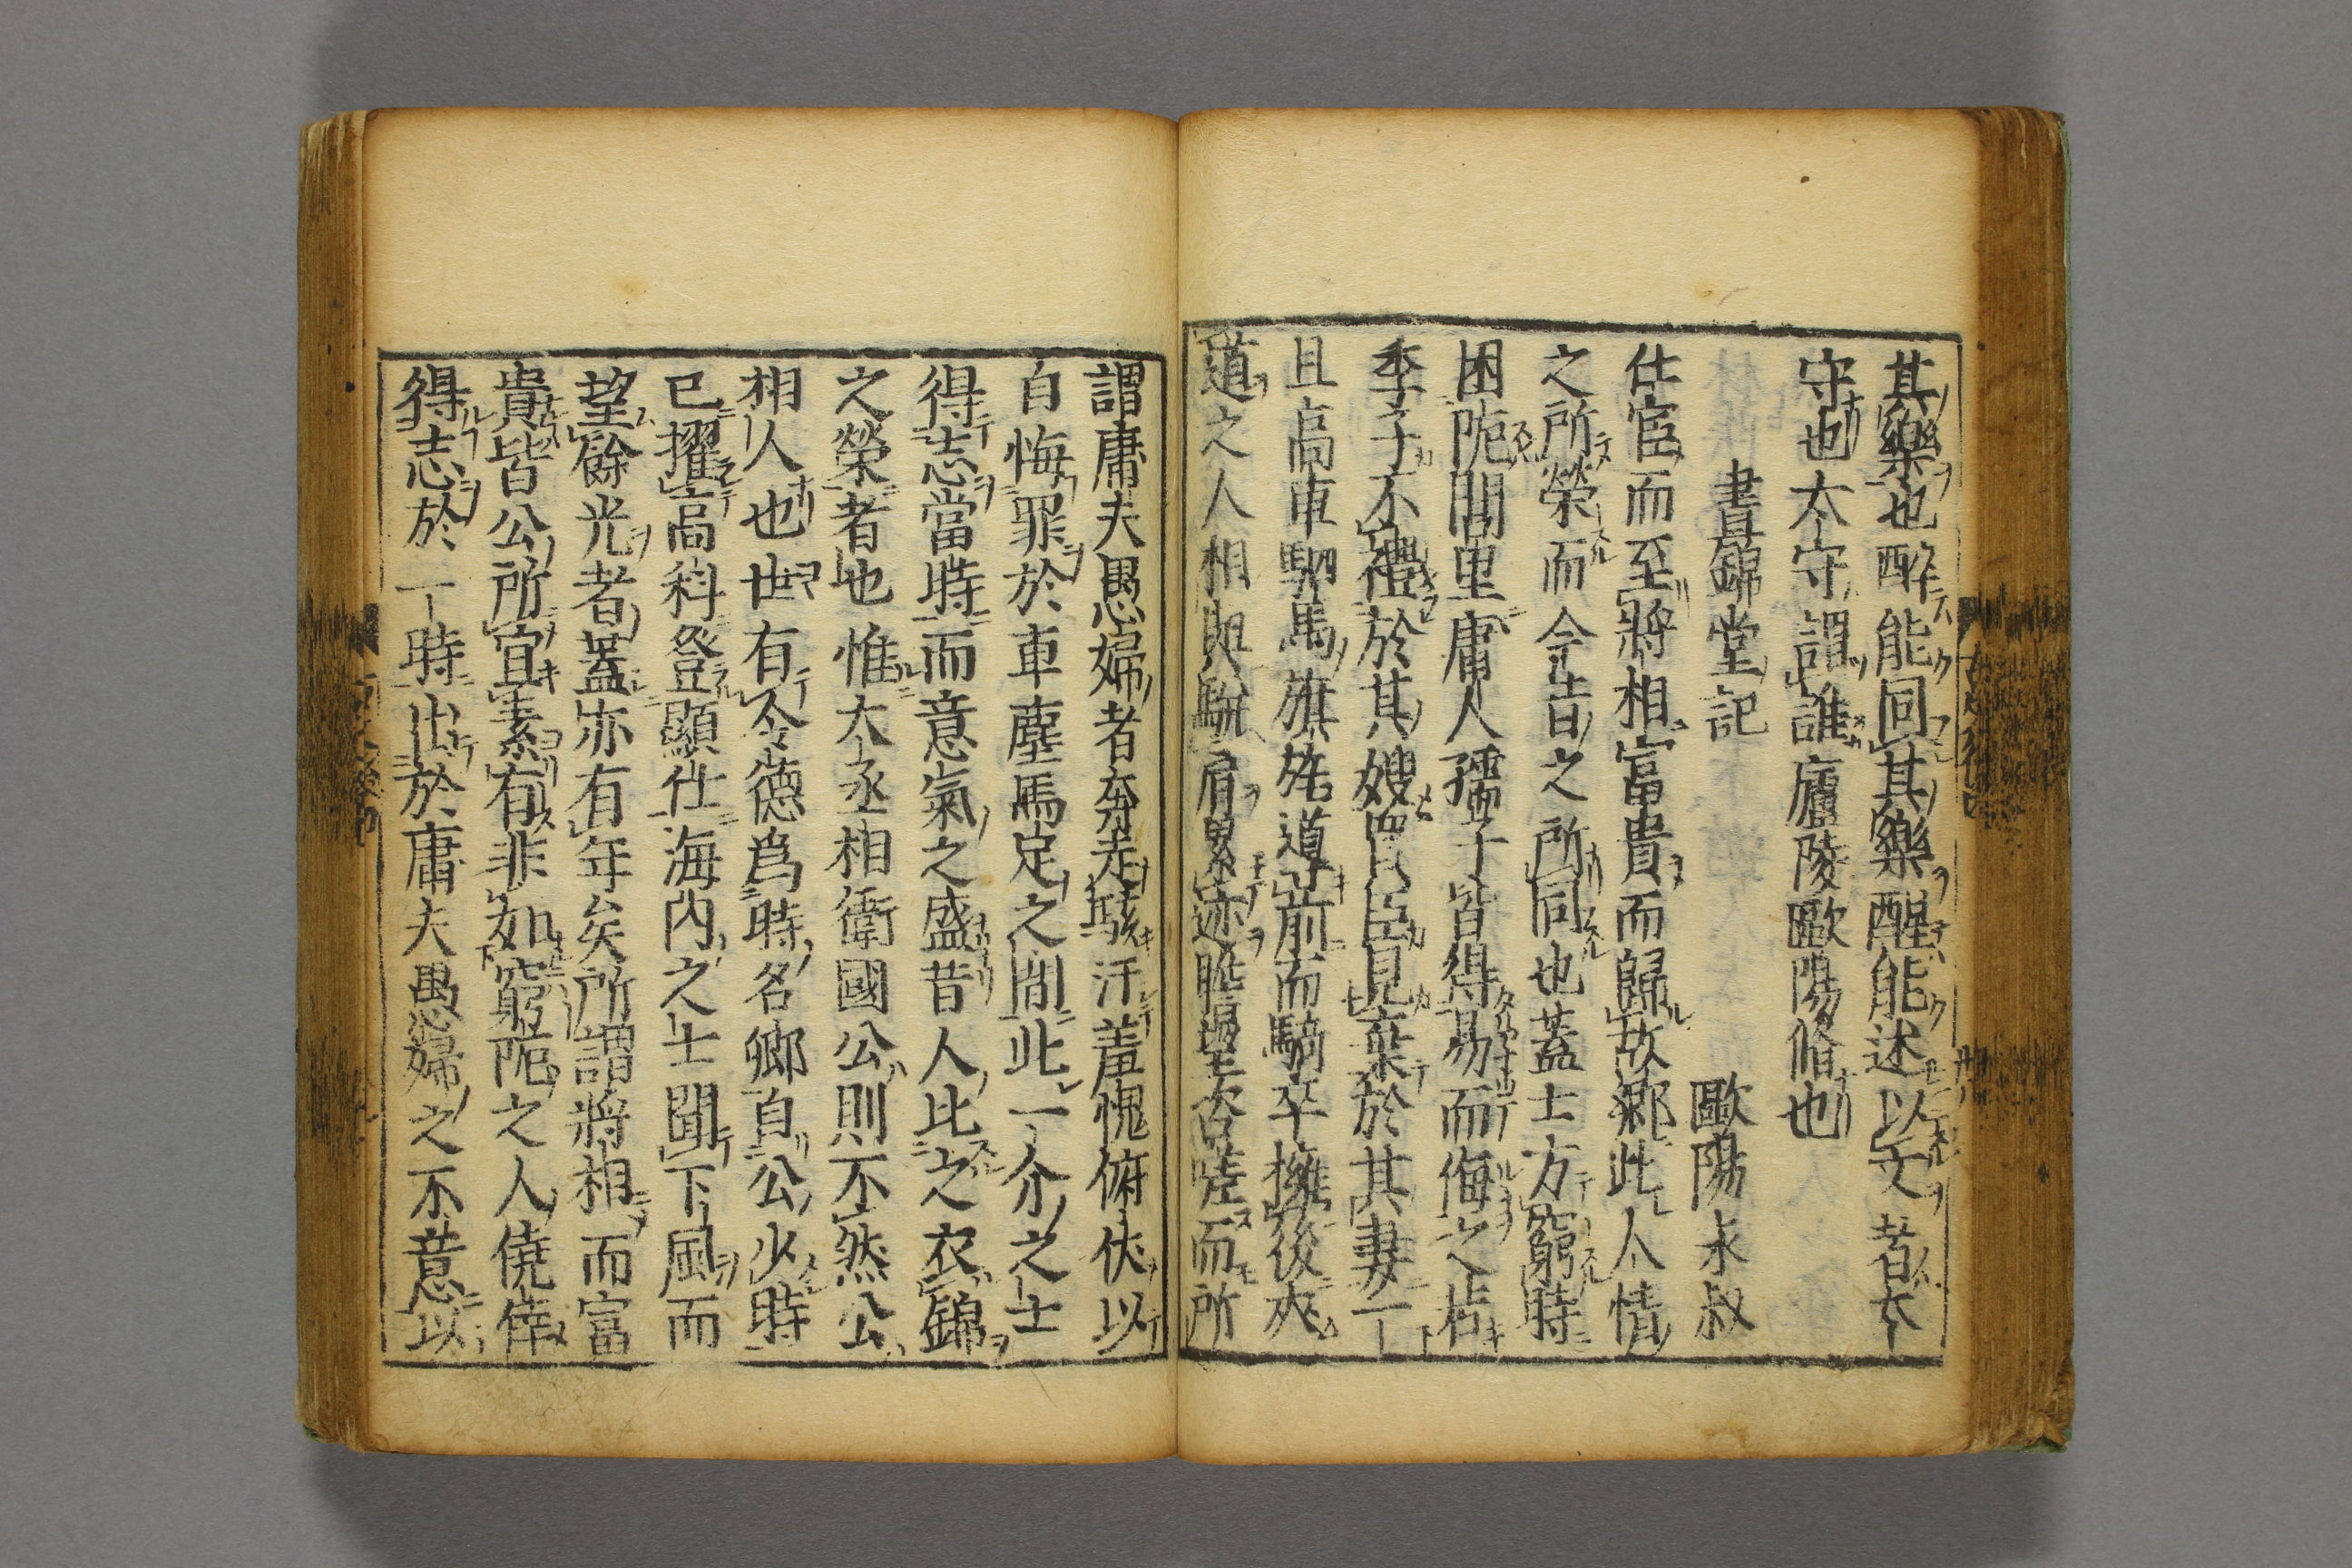 其樂也醉能同其樂醒能述以文者太
守也太守謂誰廬陵歐陽脩也
晝錦堂記
歐陽永叔
仕宦而至將相富貴而歸故鄉此人情
之所榮而今昔之所同也蓋士方窮時
困阨閭里庸人孺子皆得易而侮之若
季子不禮於其嫂買臣見棄於其妻一
且高車駟馬旗旄導前而騎卒擁後夾
道之人相與駢肩累迹瞻望咨嗟而所
謂庸夫愚婦者奔走駭汗羞愧俯伏以
自悔罪於車塵馬足之間此一介之士
得志當時而意氣之盛昔人比之衣錦
之榮者也惟大丞相衛國公則不然公
相人也世有令德爲時名卿自公少時
已擢高科登顯仕海內之士聞下風而
望餘光者蓋亦有年矣所謂將相而富
貴皆公所宜素有非如窮阨之人僥倖
得志於一時出於庸夫愚婦之不意以